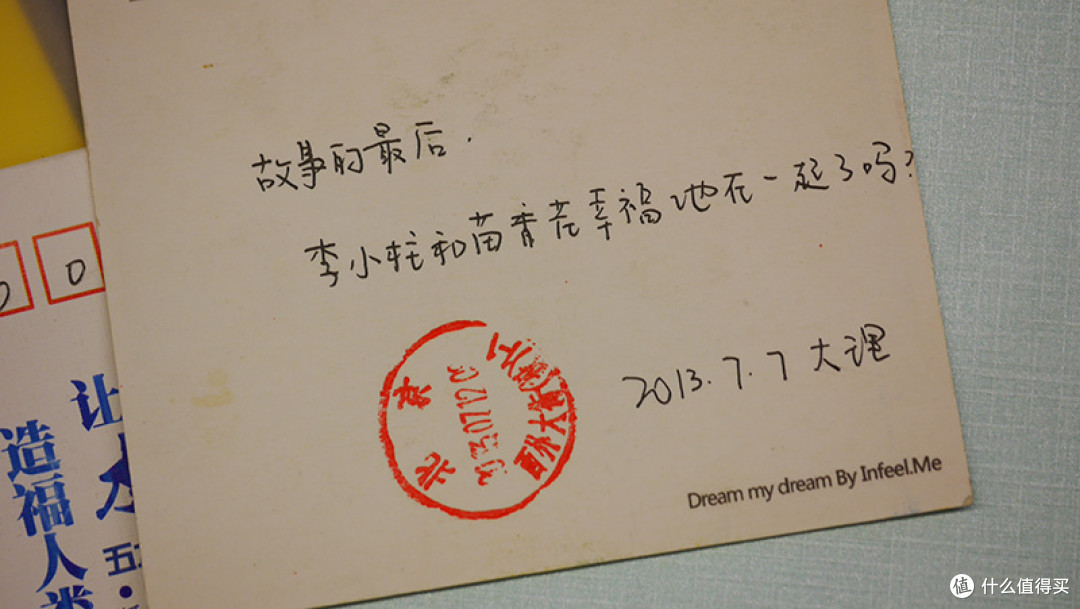 故事的最后.
李小柱和苗青花幸福地在一起了吗?
2013.7.7 大理
北京
Dream my dream By Infeel.Me
0
让
造福人类
五
值 什么值得买